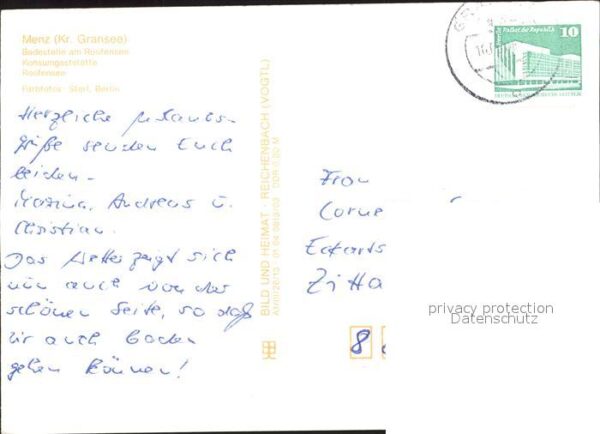 Menz (Kr. Gransee)
Badestelle am Roofensee
Konsumgaststätte
Roofensee
Farbfotos: Starl, Berlin
Herzliche Urlaubs-
grüße senden Euch
beiden
Marina, Andreas u.
Christian.
Das Wetter zeigt sich
nun auch von der
schönen Seite, so daß
wir auch baden
gehen können!
BILD UND HEIMAT · REICHENBACH (VOGTL)
Palast der Republik
10
Frau
Corne
Eckarts
Zitta
8
privacy protection
Datenschutz